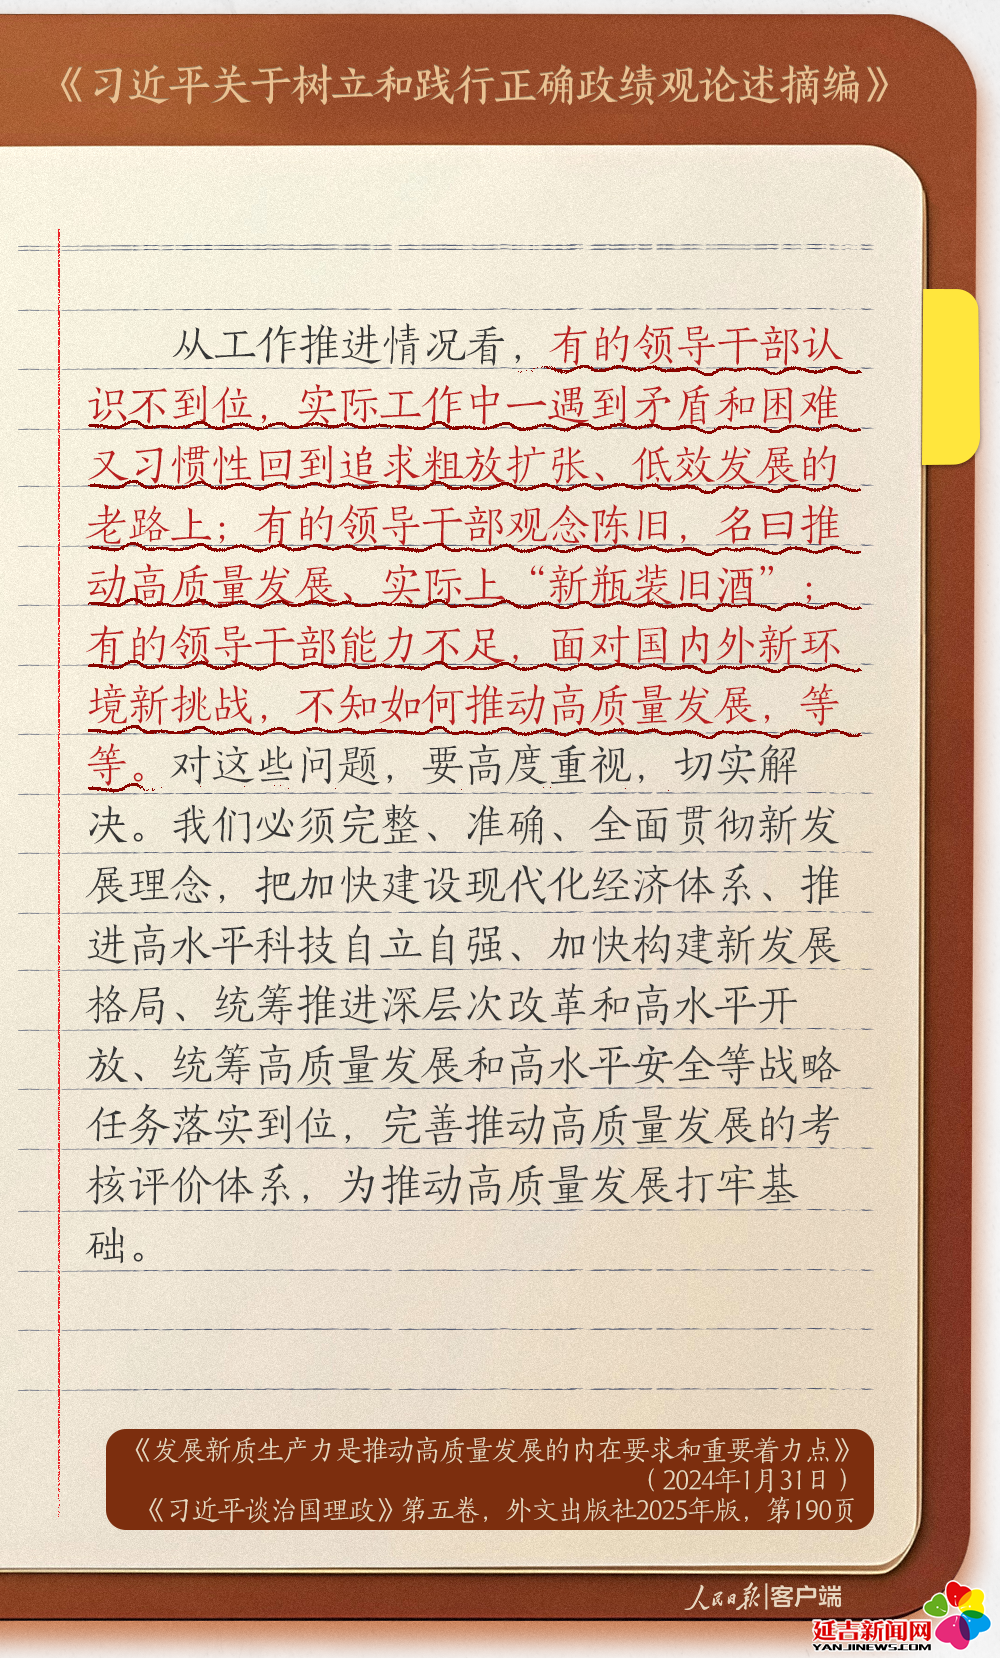 《习近平关于树立和践行正确政绩观论述摘编》
从工作推进情况看，有的领导干部认
识不到位，实际工作中一遇到矛盾和困难
又习惯性回到追求粗放扩张、低效发展的
老路上；有的领导干部观念陈旧，名曰推
动高质量发展、实际上“新瓶装旧酒”；
有的领导干部能力不足，面对国内外新环
境新挑战，不知如何推动高质量发展，等
等。对这些问题，要高度重视，切实解
决。我们必须完整、准确、全面贯彻新发
展理念，把加快建设现代化经济体系、推
进高水平科技自立自强、加快构建新发展
格局、统筹推进深层次改革和高水平开
放、统筹高质量发展和高水平安全等战略
任务落实到位，完善推动高质量发展的考
核评价体系，为推动高质量发展打牢基
础。
《发展新质生产力是推动高质量发展的内在要求和重要着力点》
（2024年1月31日）
《习近平谈治国理政》第五卷，外文出版社2025年版，第190页
人民日报|客户端
延吉新闻网
YANJINEWS.COM